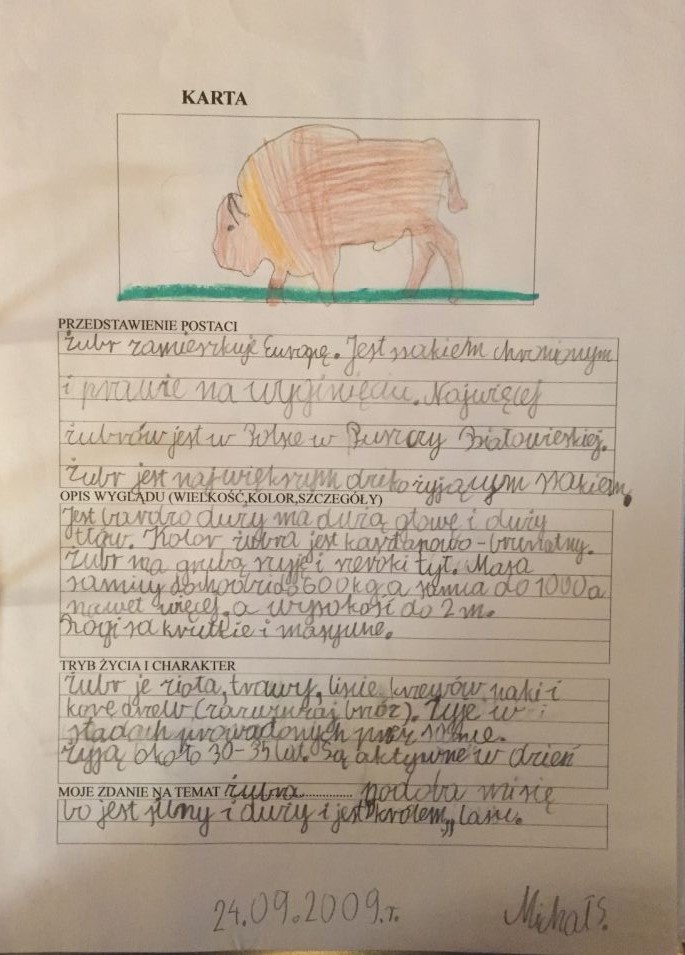 KARTA
PRZEDSTAWIENIE POSTACI
Żubr zamieszkuje Europę. Jest ssakiem chronionym
i prawie na wyginięciu. Najwięcej
żubrów jest w Polsce w Puszczy Białowieskiej.
Żubr jest największym dziko żyjącym ssakiem.
OPIS WYGLĄDU (WIELKOŚĆ,KOLOR,SZCZEGÓŁY)
Jest bardzo duży ma dużą głowę i duży
tłów. Kolor żubra jest kasztanowo-brunatny.
Żubr ma grubą szyję i szeroki tył. Masa
samicy dochodzi do 600 kg a samca do 1000 a
nawet więcej. a wysokość do 2 m.
Rogi są krutkie i masywne.
TRYB ŻYCIA I CHARAKTER
Żubr je zioła, trawy, liście krzewów, pąki i
korę drzew
stadach prowadzonych przez samice.
Żyją około 30-35 lat. Są aktywne w dzień
MOJE ZDANIE NA TEMAT żubra............ podoba mi się
bo jest silny i duży i jest „królem„ lasu.
24.09.2009.r.
Michał S.